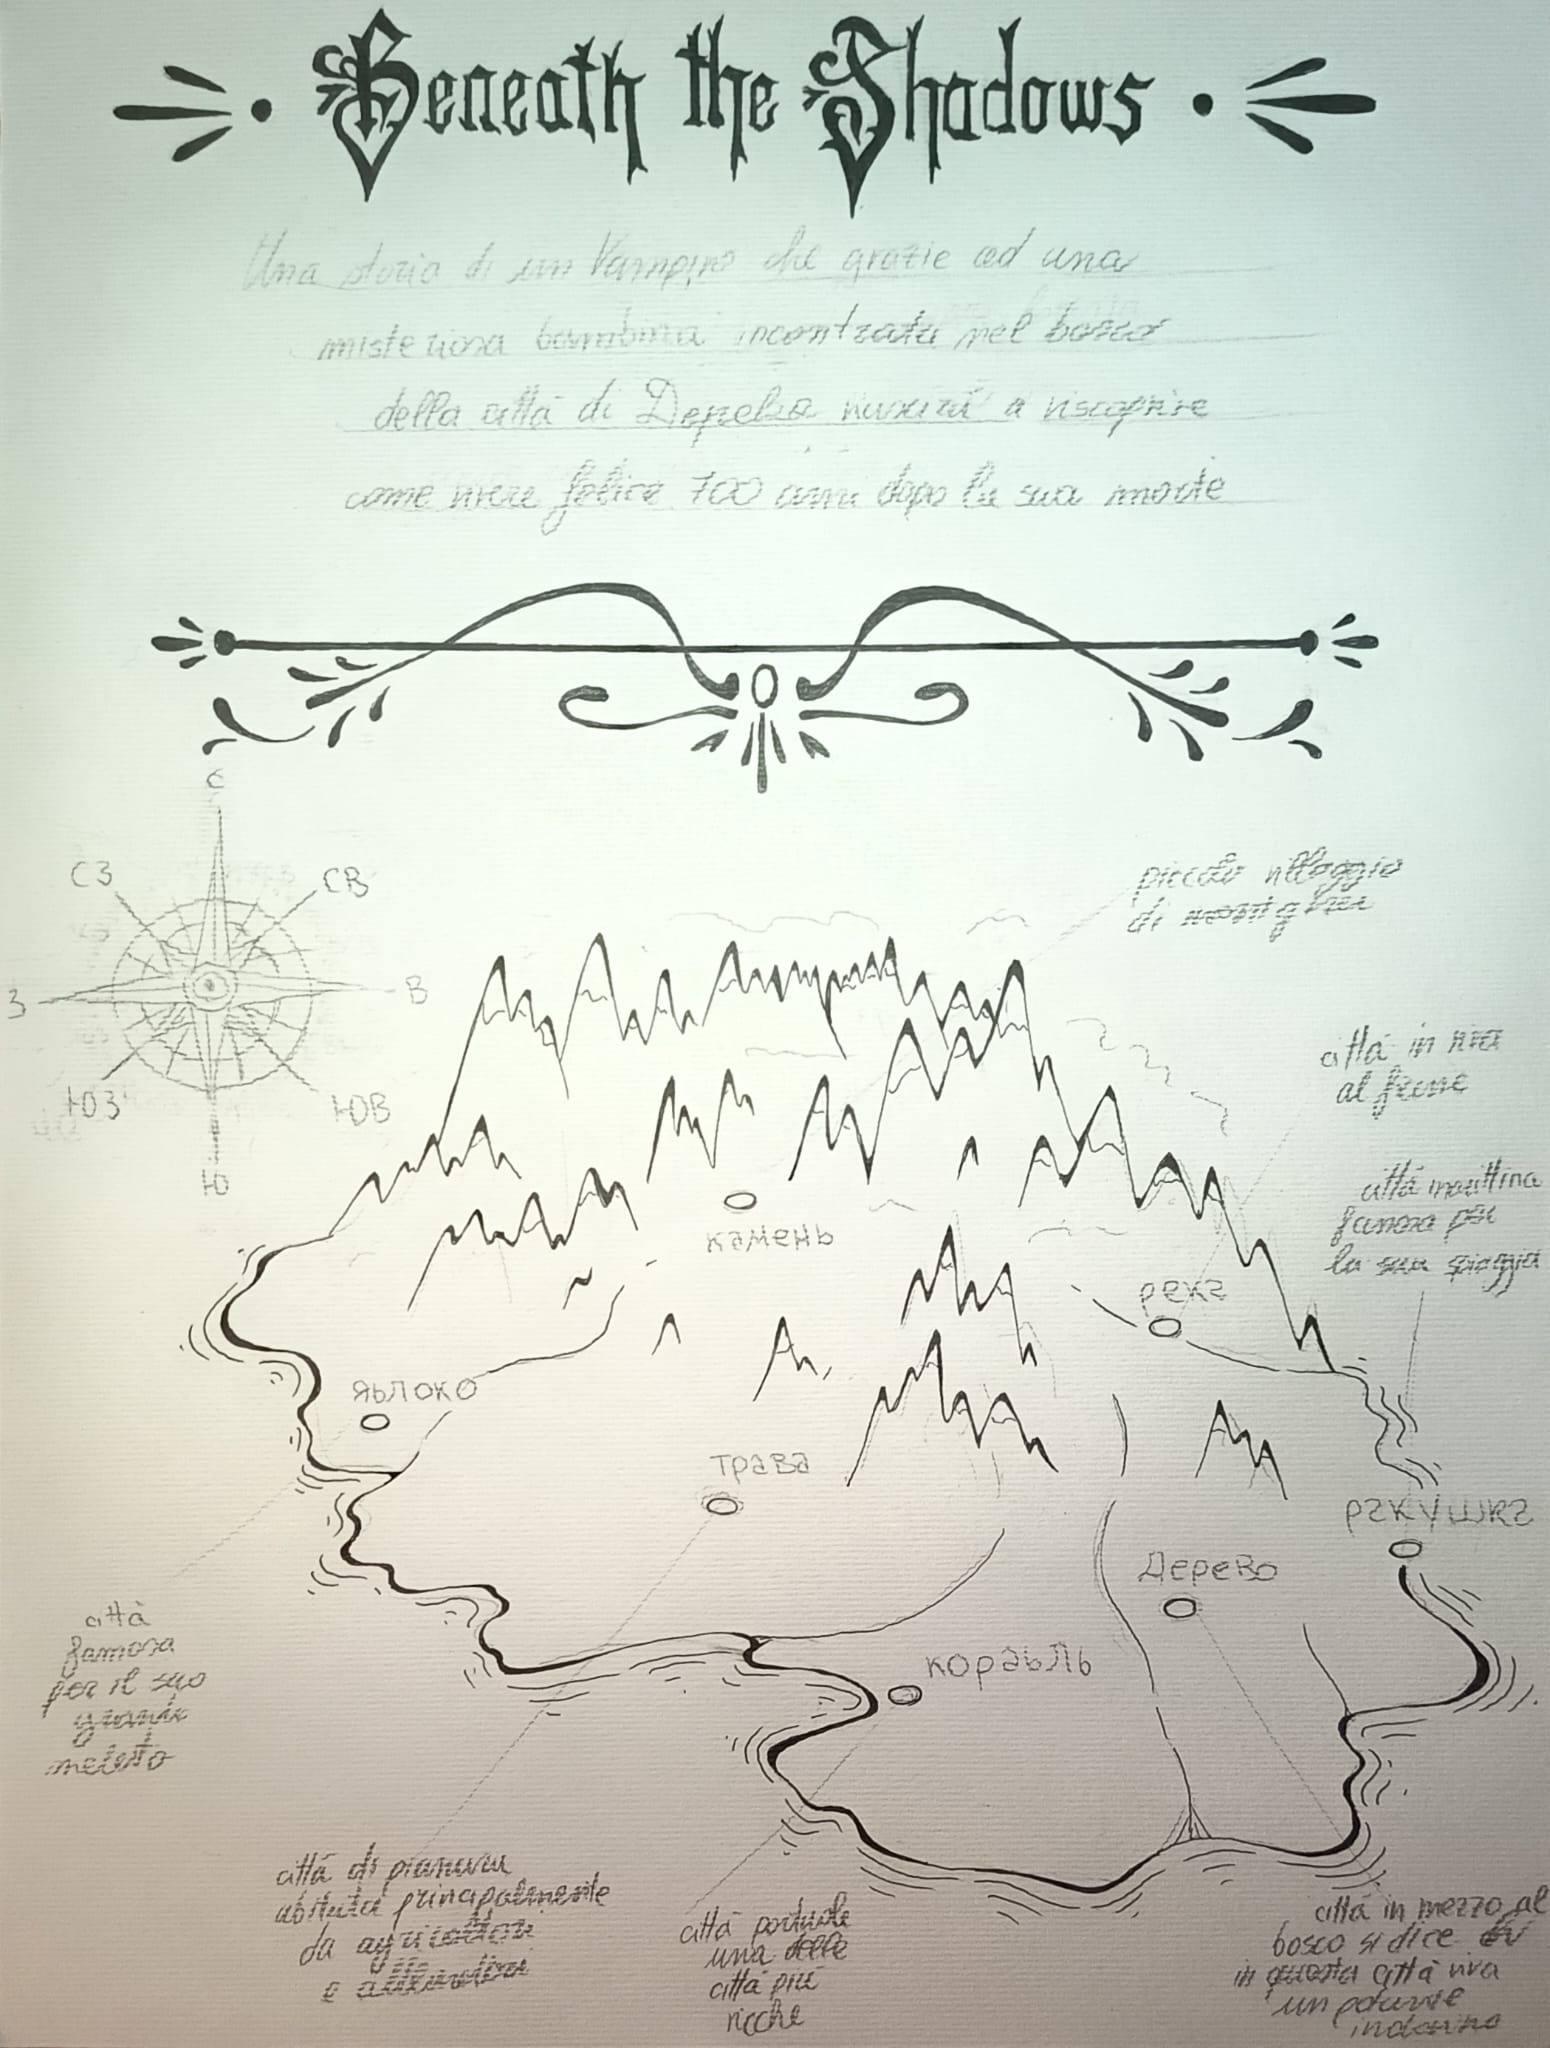 Beneath the Shadows
Una storia di un Vampiro che grazie ad una
misteriosa bambina incontrata nel bosco
della città di Дерево riuscirà a riscoprire
come vivere felice 700 anni dopo la sua morte
С
СЗ
СВ
З
В
ЮЗ
ЮВ
Ю
piccolo villaggio
di
città in riva
al fiume
città marittina
famosa per
la sua spiaggia
камень
река
яблоко
трава
ракушка
Дерево
корабль
città
famosa
per il suo
grande
meleto
città di pianura
abitata principalmente
da agricoltori
e allevatori
città portuale
una delle
città più
ricche
città in mezzo al
bosco si dice
in questa città viva
un potente
indovino